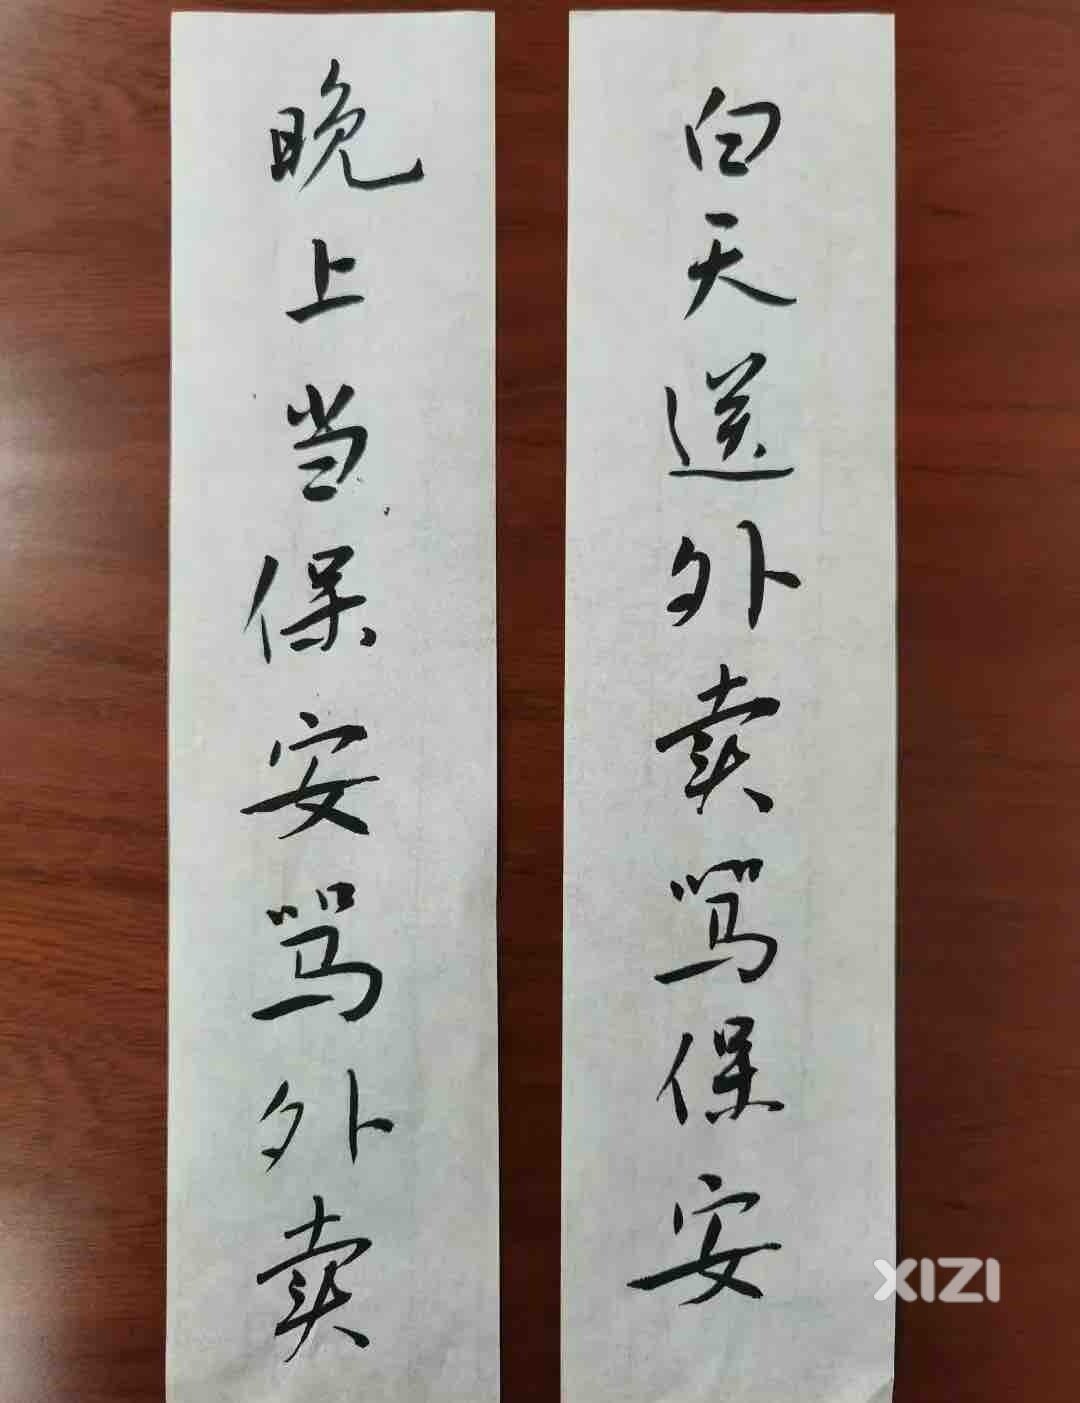 白天送外卖骂保安
晚上当保安骂外卖
XIZI